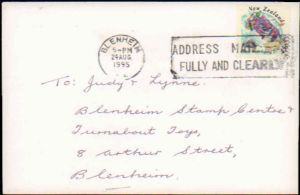 New Zealand
BLENHEIM
5-PM
24 AUG
1995
ADDRESS MAIL
FULLY AND CLEARLY
To: Judy & Lynne.
Blenheim Stamp Centre &
Turnabout Toys,
8 Arthur Street,
Blenheim.